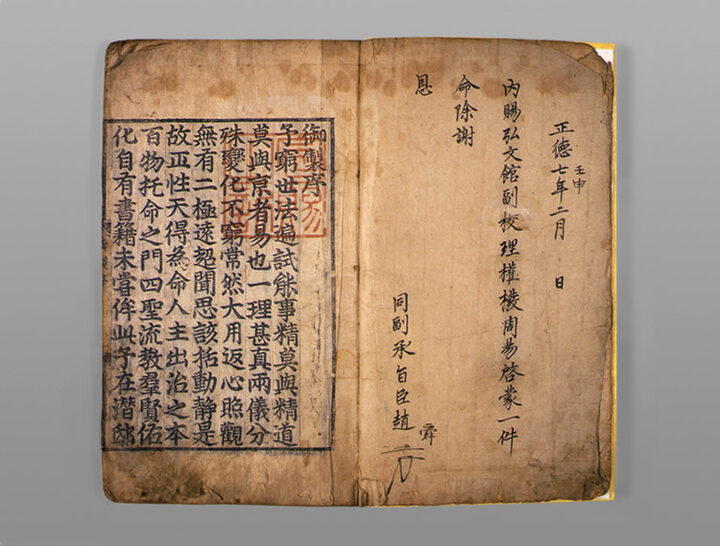 正德七年壬申二月 日
內賜弘文館副校理權橃周易啓蒙一件
命除謝
恩
同副承旨臣趙 舜
御製序
予窮世法遍試能事精莫與精道
莫與京者易也一理甚真兩儀分
殊變化不窮常然大用返心照觀
無有二極遠契聞思該括動靜是
故正性天得為命人主出治之本
百物托命之門四聖流教羣賢佑
化自有書籍未嘗侔此予在潛邸